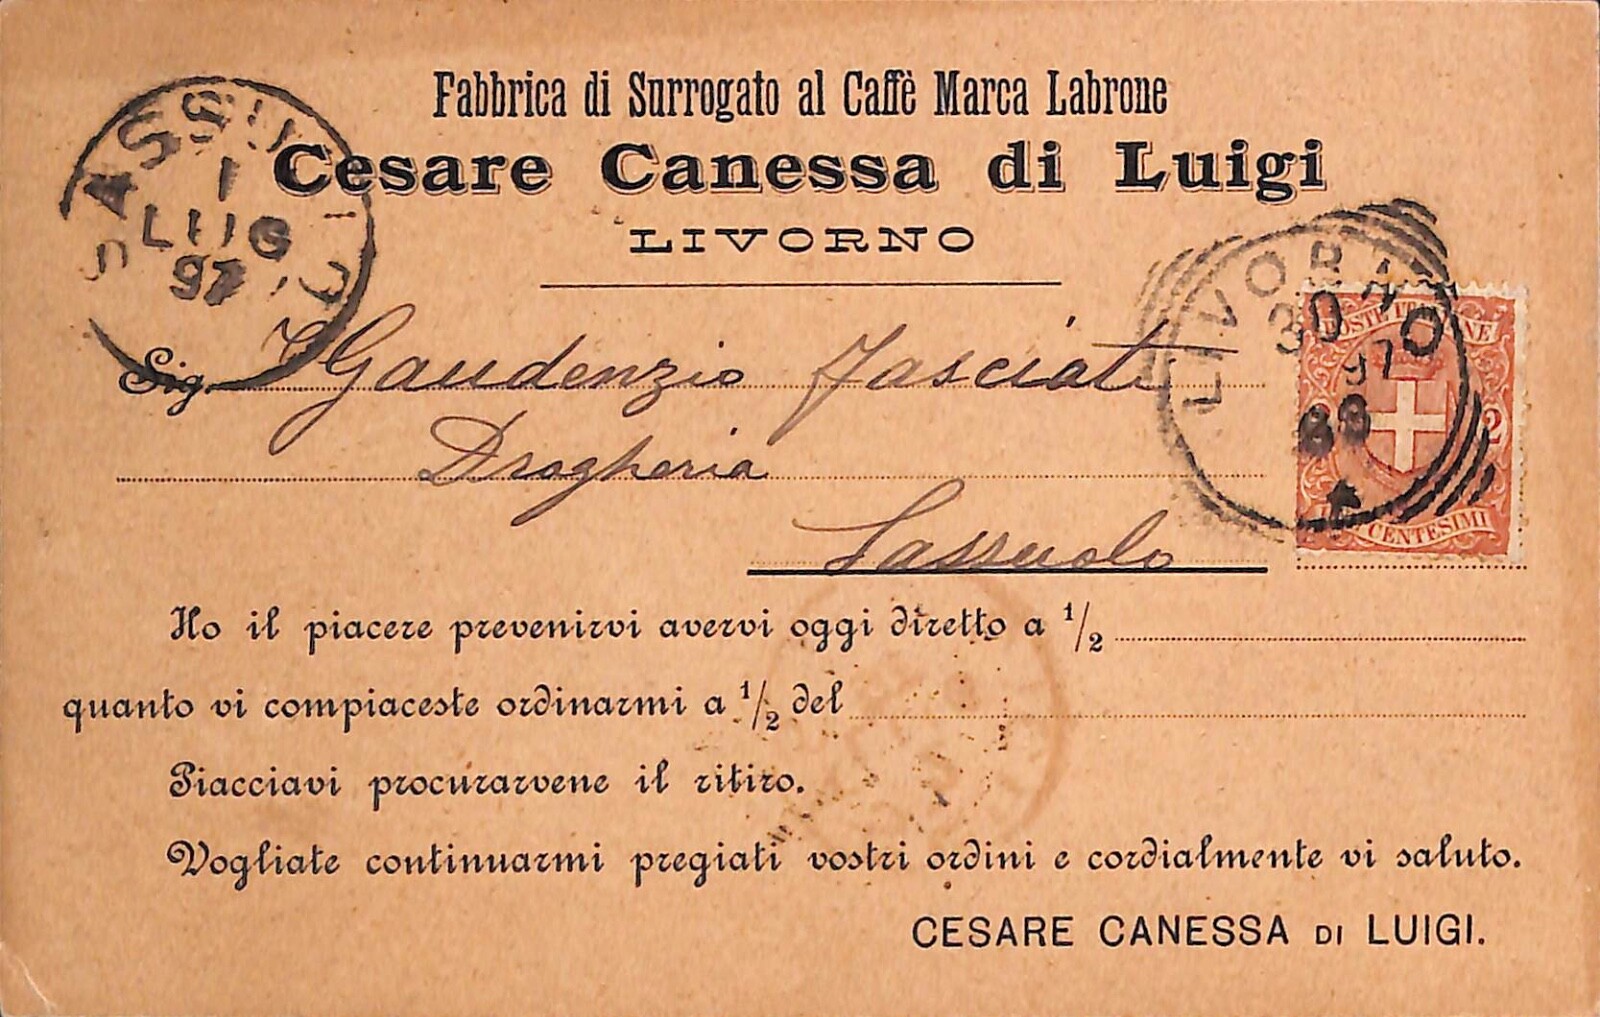 Fabbrica di Surrogato al Caffè Marca Labrone
Cesare Canessa di Luigi
LIVORNO
SASSUOLO
1
LUG
97
LIVORNO
30
97
POSTE ITALIANE
2
CENTESIMI
Sig. Gaudenzio Fasciati
Drogheria
Sassuolo
Ho il piacere prevenirvi avervi oggi diretto a 1/2
quanto vi compiaceste ordinarmi a 1/2 del
Piacciavi procurarvene il ritiro.
Vogliate continuarmi pregiati vostri ordini e cordialmente vi saluto.
CESARE CANESSA DI LUIGI.